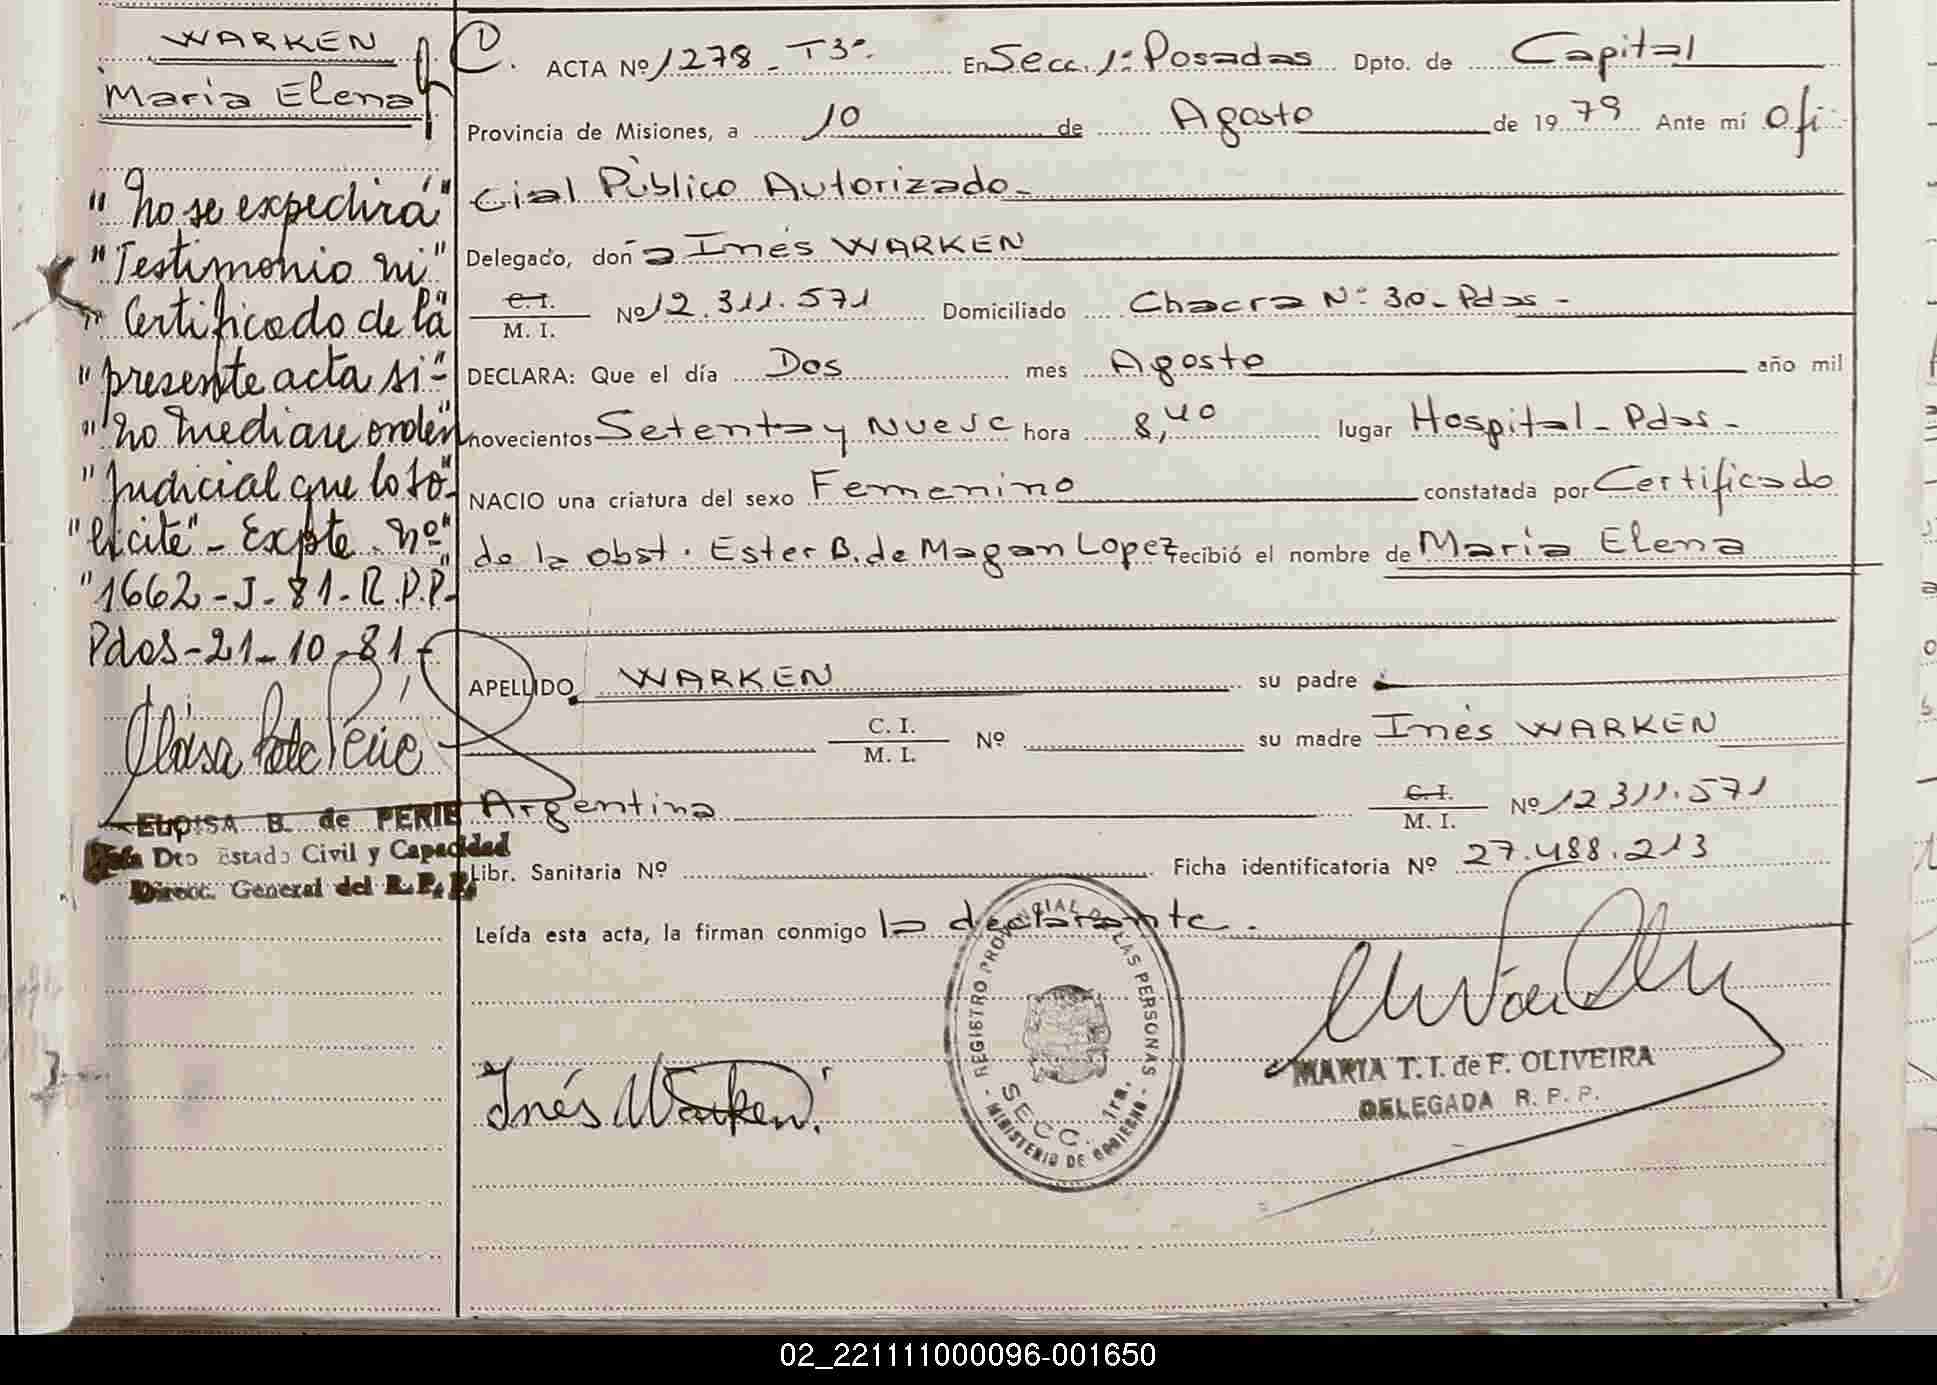 WARKEN
Maria Elena
"No se expedirá"
"Testimonio ni"
"Certificado de la"
"presente acta si-"
"no mediare orden"
"Judicial que lo so"-
"licite" - Expte. Nº"
"1662-J-81-R.P.P.-
Pdas-21-10-81-
ELOISA B. de PERIE
Jefa Dto Estado Civil y Capacidad
Direcc. General del R. P. P.
ACTA Nº 1278 - T3º. En Secc. 1ª Posadas Dpto. de Capital
Provincia de Misiones, a 10 de Agosto de 19 79 Ante mí Ofi
cial Público Autorizado-
Delegado, doña Inés WARKEN
C. I.
M. I.
Nº 12.311.571 Domiciliado Chacra Nº 30- Pdas-
DECLARA: Que el día Dos mes Agosto año mil
novecientos Setenta y Nueve hora 8,40 lugar Hospital- Pdas-
NACIO una criatura del sexo Femenino constatada por Certificado
de la obst. Ester B. de Magan Lopez recibió el nombre de Maria Elena
APELLIDO WARKEN su padre
C. I.
M. I.
Nº su madre Inés WARKEN
Argentina
C. I.
M. I.
Nº 12311.571
Libr. Sanitaria Nº Ficha identificatoria Nº 27.488.213
Leída esta acta, la firman conmigo la declarante.
REGISTRO PROVINCIAL DE LAS PERSONAS
SECC. 1ra.
- MINISTERIO DE GOBIERNO -
Inés Warken
MARIA T. I. de F. OLIVEIRA
DELEGADA R. P. P.
02_221111000096-001650